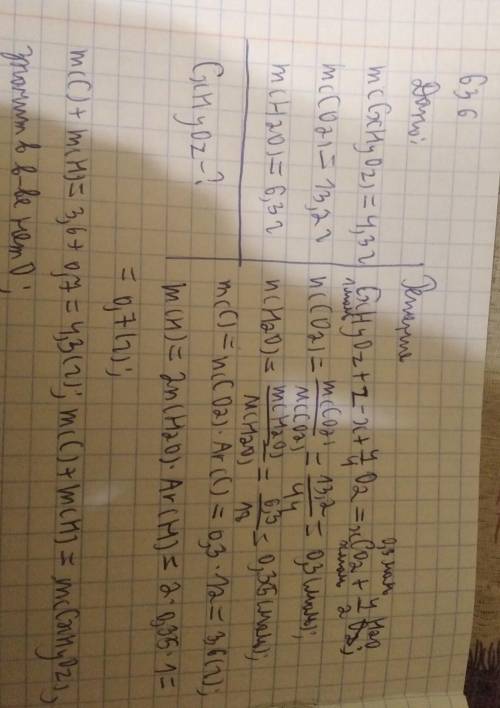 636
Дано:
m(CxHyOz) = 4,3 г
m(CO2) = 13,2 г
m(H2O) = 6,3 г
CxHyOz - ?
Решение
0,3 моль
CxHyOz + z - x + y/4 O2 = xCO2 + y/2 H2O
n(CO2) = m(CO2)/M(CO2) = 13,2/44 = 0,3 (моль);
n(H2O) = m(H2O)/M(H2O) = 6,3/18 = 0,35 (моль);
m(C) = n(CO2) · Ar(C) = 0,3 · 12 = 3,6 (г);
m(H) = 2n(H2O) · Ar(H) = 2 · 0,35 · 1 =
= 0,7 (г);
m(C) + m(H) = 3,6 + 0,7 = 4,3 (г); m(C) + m(H) = m(CxHyOz),
значит в в-ве нет O;